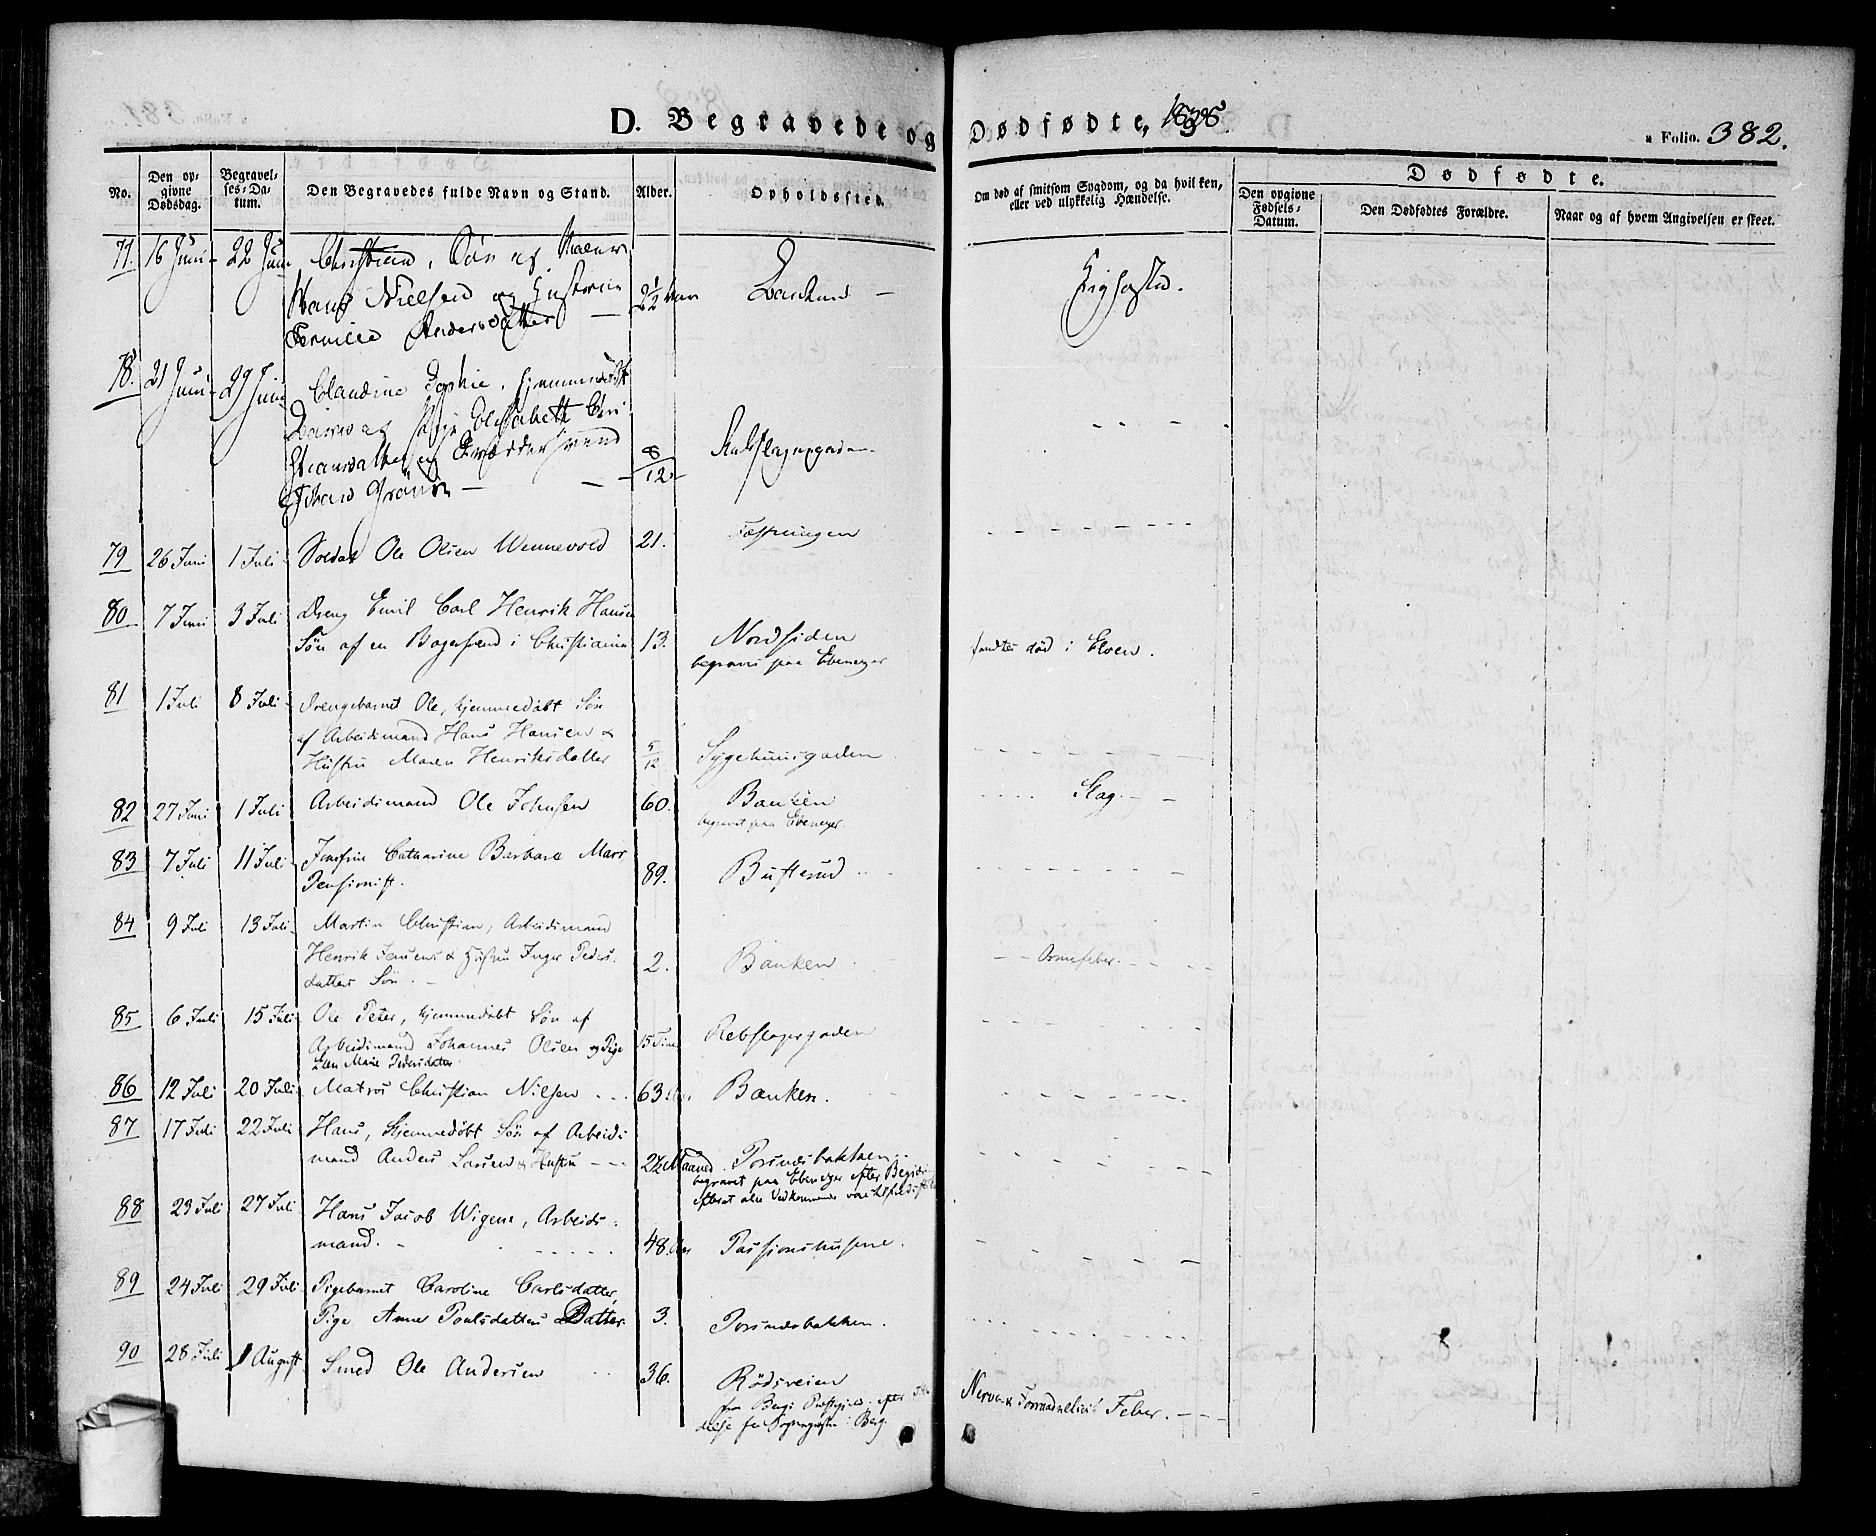 D. Begravede og Dødfødte, 1838.
a Folio. 382.
No.
Den op-
givne
Dødsdag.
Begravel-
ses-Da-
tum.
Den Begravedes fulde Navn og Stand.
Alder.
Opholdssted.
Om død af smitsom Sygdom, og da hvilken,
eller ved ulykkelig Hændelse.
Dødfødte.
Den opgivne
Fødsels-
Datum.
Den Dødfødtes Forældre.
Naar og af hvem Angivelsen er skeet.
77. 16 Juni 22 Juni Christian, Søn af
Hans Nielsen og Hustrue 2 1/2 Aar Banken
Pernille Andersdatter
78. 21 Juni 29 Juni Claudine Sophie, hjemmedøbt
Elisabeth Chri
stiansdatter og 8/12
79 26 Juni 1 Juli Soldat Ole Olsen Wennevold 21. Fæstningen
80 7 Juni 3 Juli Dreng Emil Carl Henrik Hansen
Søn af en Bagersvend i Christiania 13. Nordsiden fandtes død i Elven.
begravet paa Ebenezer
81 1 Juli 8 Juli Drengebarnet Ole, hjemmedøbt Søn
af Arbeidsmand Hans Hansen &
Hustru Maren Henriksdatter 5/12 Sygehuusgaden
82 27 Juni 1 Juli Arbeidsmand Ole Johnsen 60. Banken Slag.
begravet paa Ebenezer.
83 7 Juli 11 Juli Jomfrue Catharine Barbara Marr
Pensionist. 89. Busterud
84 9 Juli 13 Juli Martin Christian, Arbeidsmand
Henrik Jensens & Hustru Inger Peders-
datters Søn. 2. Banken Ormefeber.
85 6 Juli 15 Juli Ole Peter, hjemmedøbt Søn af
Arbeidsmand Johannes Olsen og Pige 15 Timer Rebslagergaden
Ellen Marie Pedersdatter
86 12 Juli 20 Juli Matros Christian Nilsen 63 Aar Banken.
87 17 Juli 22 Juli Hans, hjemmedøbt Søn af Arbeids
mand Anders Larsen & Hustru 2 1/2 Maaned. Torsnæsbakken
begravet paa Ebenezer efter Begjær
88 23 Juli 27 Juli Hans Jacob Wigene, Arbeids-
mand. 48 Aar Passionshusene.
89 24 Juli 29 Juli Pigebarnet Caroline Carlsdatter,
Pige Anne Poulsdatters Datter. 3. Torsnæsbakken.
90 28 Juli 1 August Smed Ole Andersen 36. Rødsveien
fra Bergs Præstegjeld, efter
delse fra Sognepræsten i Berg.
Nerve- & Forraadnelses Feber.